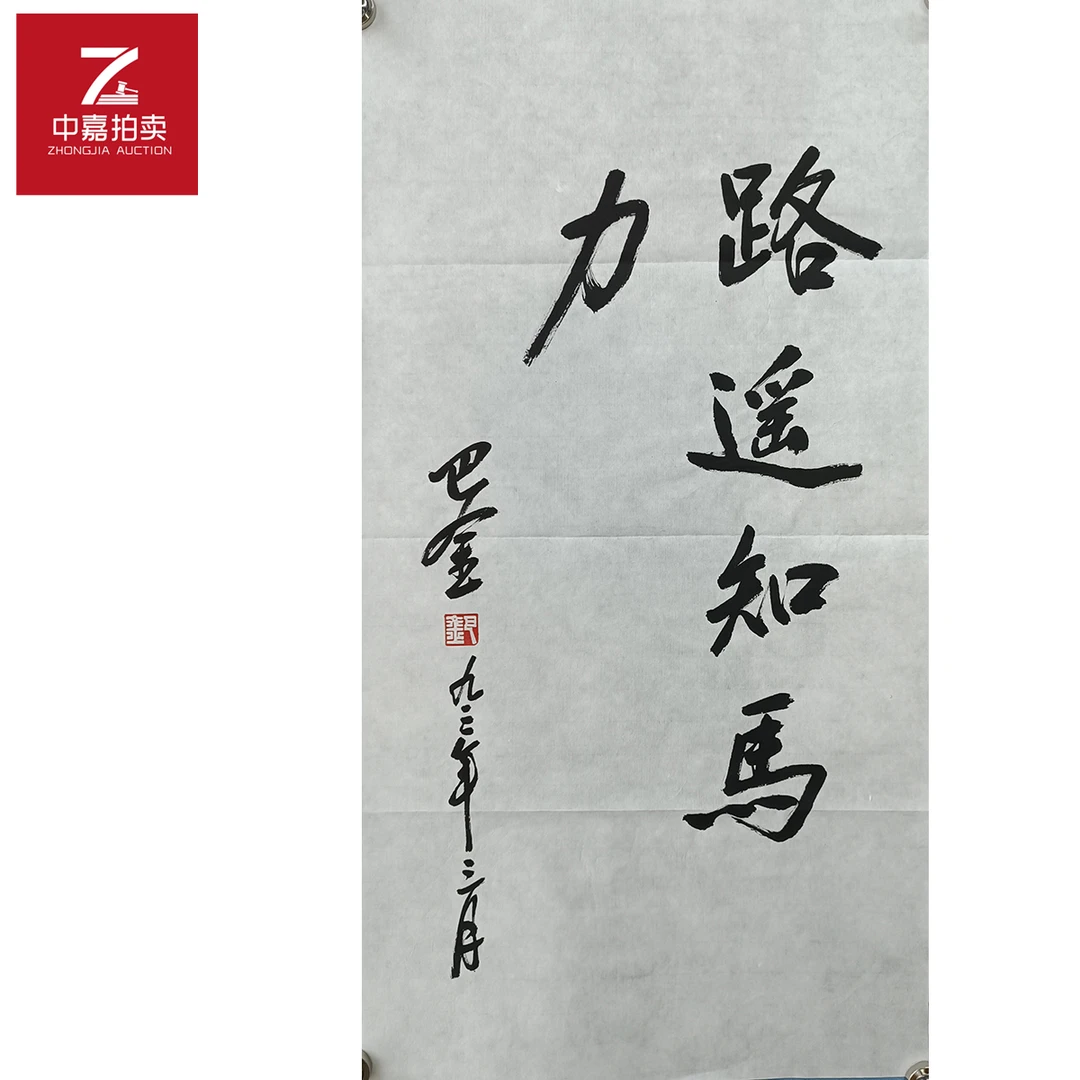 中嘉拍卖
ZHONGJIA AUCTION
路遥知馬
力
巴金
九三年三月